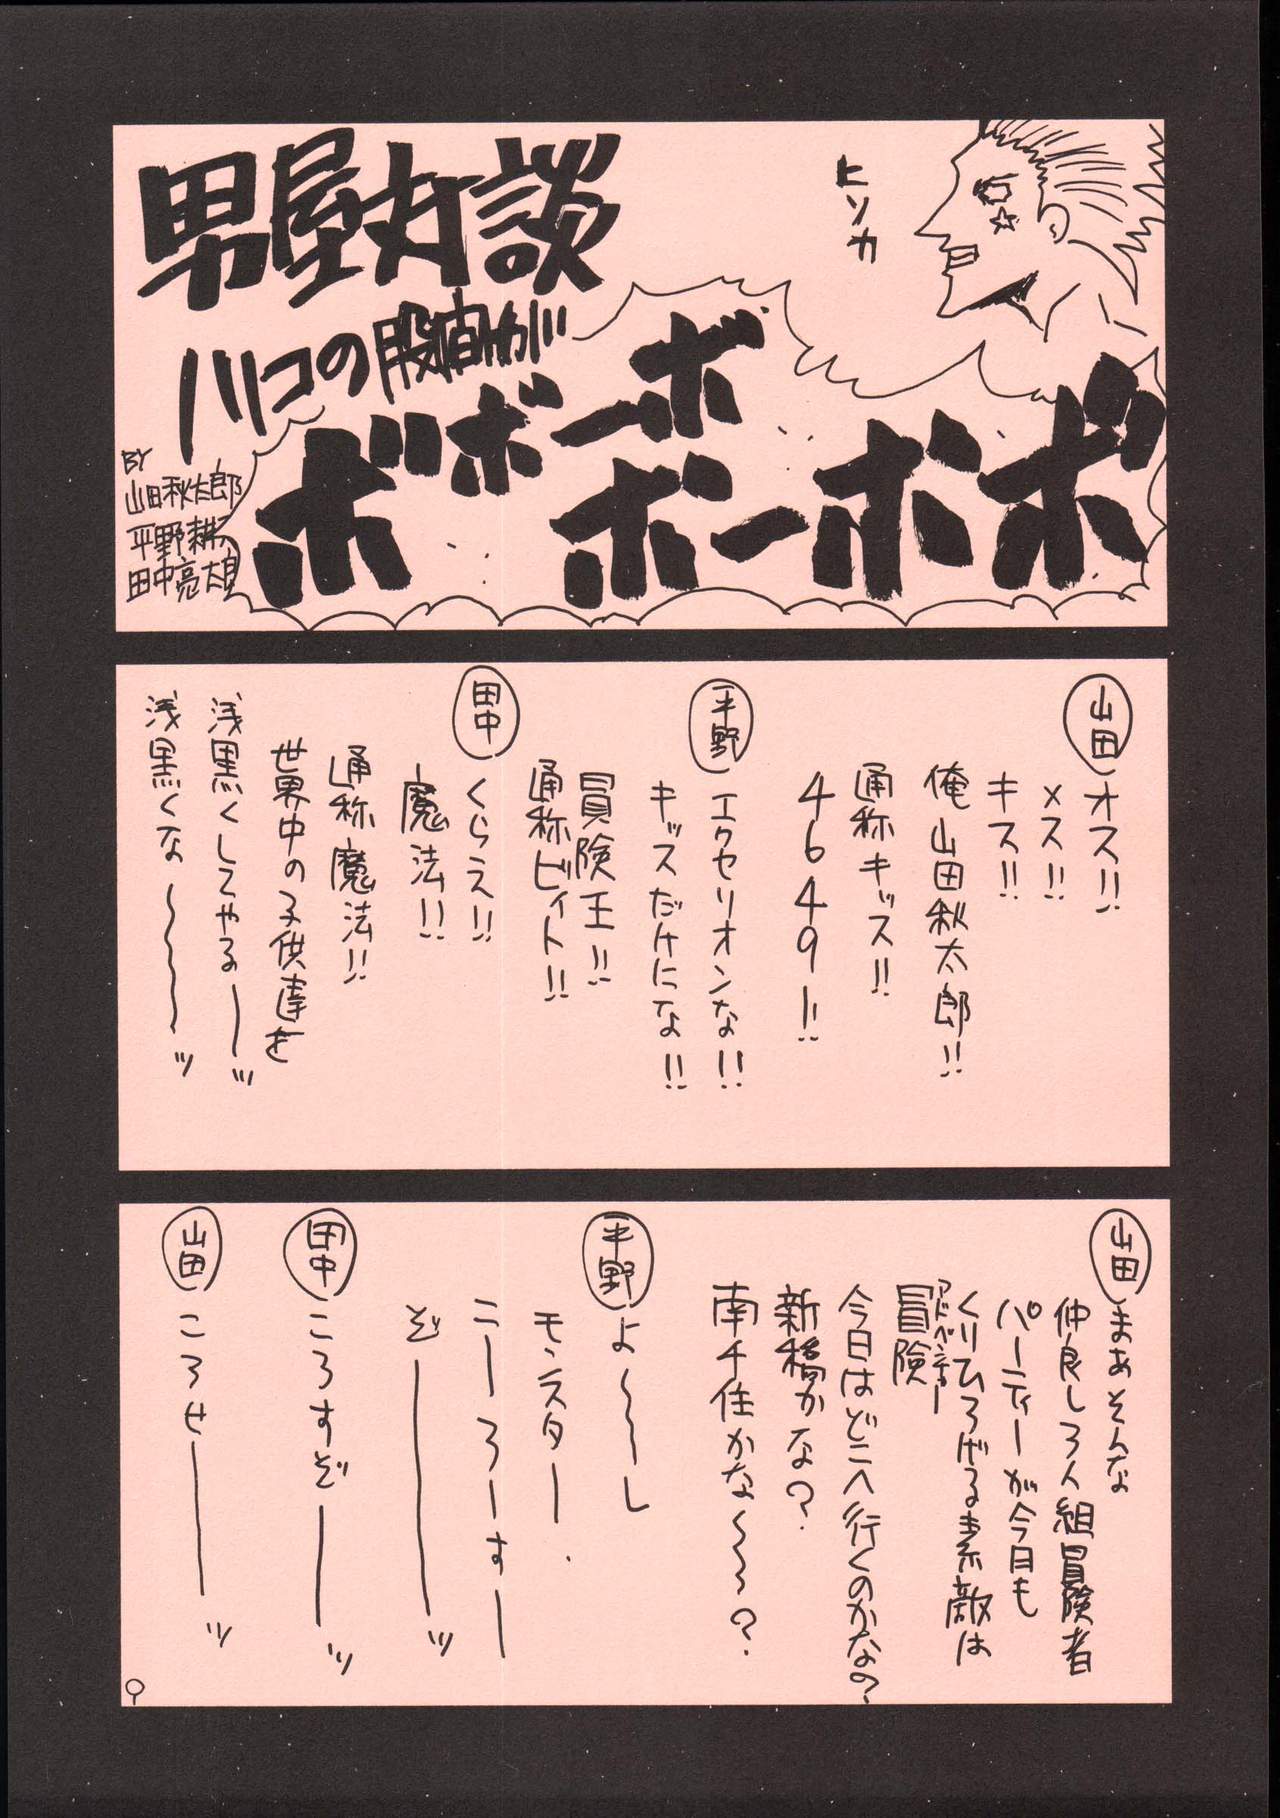 男屋対談
ノリコの股間が
ボボボーボ
ボーボボ
ヒソカ
BY
山田秋太郎
平野耕太
田中亮太郎
山田
オス!!
メス!!
キス!!
俺山田秋太郎!!
通称キッス!!
4649ー!!
平野
エクセリオンな!!
キッスだけにな!!
冒険王!!
通称ビィト!!
田中
くらえ!!
魔法!!
通称魔法!!
世界中の子供達を
浅黒くしてやるーッ
浅黒くな〜〜〜ッ
山田
まあそんな
仲良し3人組冒険者
パーティーが今日も
くりひろげる素敵な
冒険
アドベンチャー
今日はどこへ行くのかな?
新橋かな?
南千住かな〜〜?
平野
よ〜〜し
モンスター
こーろーすー
ぞーーーッ
田中
ころすぞーーッ
山田
ころせーーーッ
9